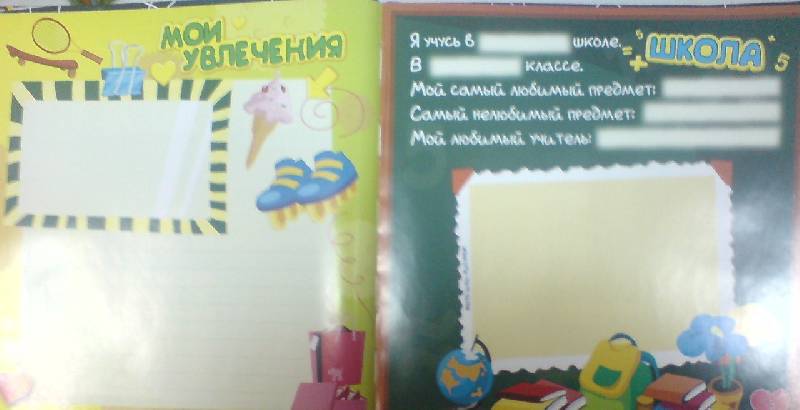 МОИ
УВЛЕЧЕНИЯ
ШКОЛА
5
Я учусь в школе.
В классе.
Мой самый любимый предмет:
Самый нелюбимый предмет:
Мой любимый учитель: